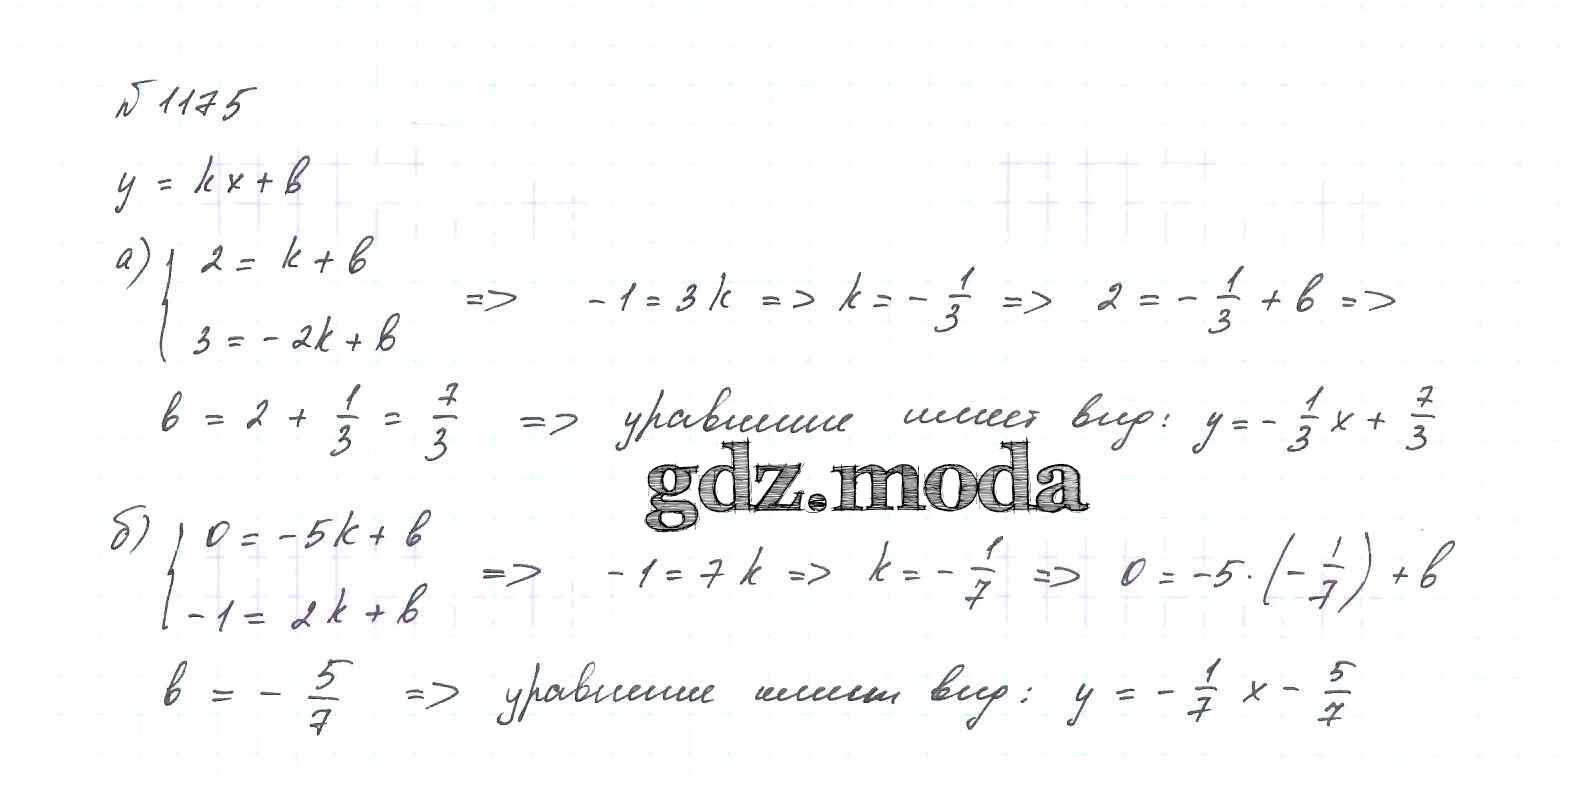 № 1175
y = kx + b
а) { 2 = k + b
3 = -2k + b
=> -1 = 3k => k = - 1/3 => 2 = - 1/3 + b =>
b = 2 + 1/3 = 7/3 => уравнение имеет вид: y = - 1/3 x + 7/3
gdz.moda
б) { 0 = -5k + b
-1 = 2k + b
=> -1 = 7k => k = - 1/7 => 0 = -5 · (- 1/7) + b
b = - 5/7 => уравнение имеет вид: y = - 1/7 x - 5/7